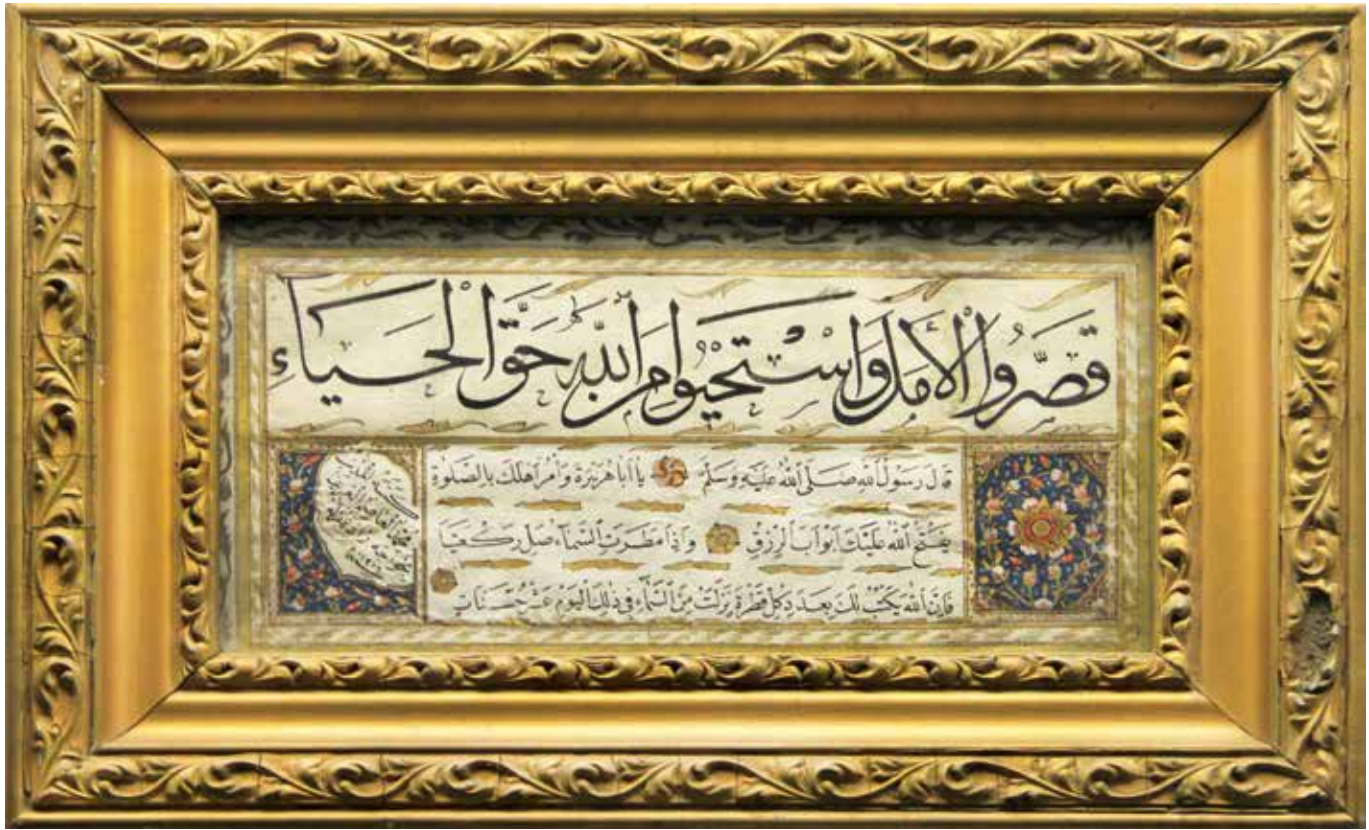 قَصِّرُوا الْأَمَلَ وَاسْتَحْيُوا مِنَ اللّٰهِ حَقَّ الْحَيَاءِ
قال رسول الله صلى الله عليه وسلم يا ابا هريرة وأمر اهلك بالصلوة
يفتح الله عليك ابواب الرزق واذا مطرت السماء صل ركعتين
فان الله يكتب لك بعدد كل قطرة نزلت من السماء في ذلك اليوم عشر حسنات